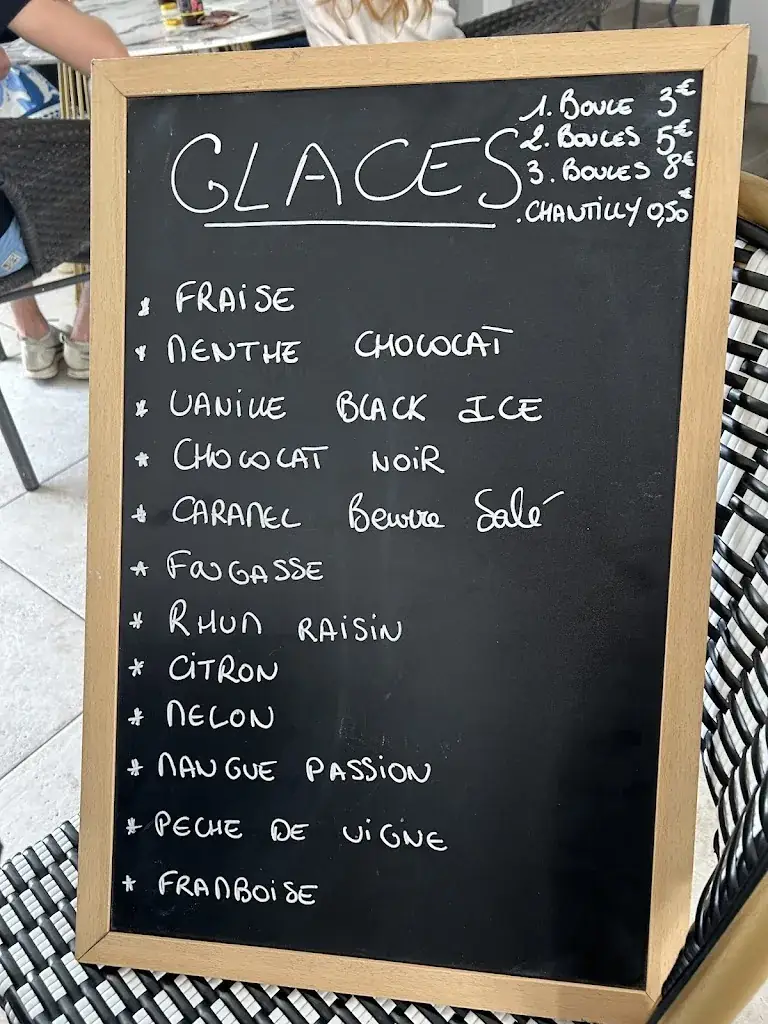 GLACES
1. BOULE 3€
2. BOULES 5€
3. BOULES 8€
. CHANTILLY 0,50€
* FRAISE
* MENTHE CHOCOLAT
* VANILLE BLACK ICE
* CHOCOLAT NOIR
* CARAMEL Beurre Salé
* FOUGASSE
* RHUM RAISIN
* CITRON
* MELON
* MANGUE PASSION
* PECHE DE VIGNE
* FRAMBOISE